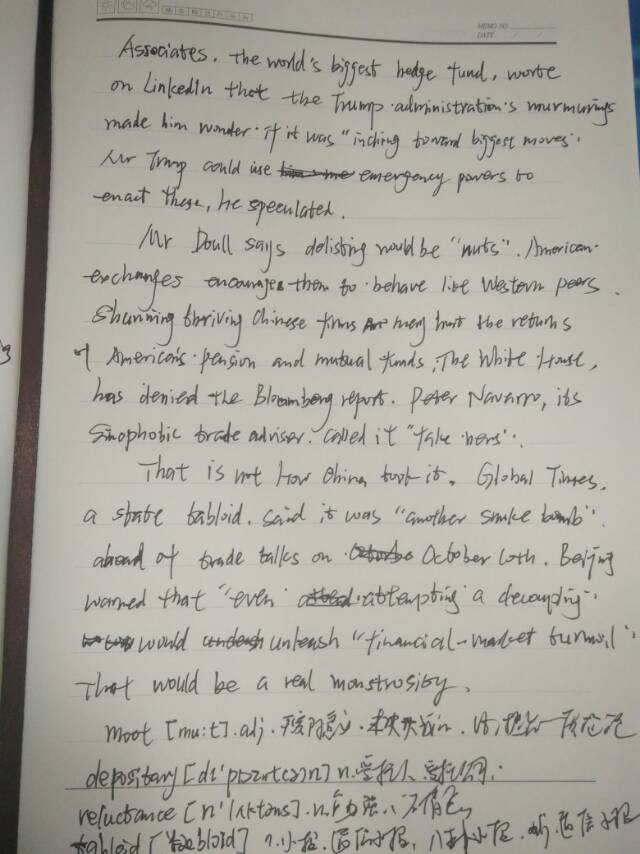 MEMO NO.
DATE / /
Associates, the world's biggest hedge fund, worte
on LinkedIn that the Trump administration's murmurings
made him wonder if it was "inching toward biggest moves".
Mr Trump could use emergency powers to
enact these, he speculated.
Mr Doull says delisting would be "nuts". American
exchanges encourages them to behave like Western peers.
Shunning thriving Chinese firms may hurt the returns
of America's pension and mutual funds. The White House,
has denied the Bloomberg report. Peter Navarro, its
Sinophobic trade adviser. called it "fake news".
That is not how China took it. Global Times,
a state tabloid, said it was "another smoke bomb"
ahead of trade talks on October 10th. Beijing
warned that "even attempting a decoupling"
would unleash "financial-market turmoil".
That would be a real monstrosity.
moot [mu:t] adj.
depositary [dɪ'pɒzɪt(ə)rɪ] n.受托人、受托公司.
reluctance [rɪ'lʌktəns] n.
tabloid ['tæblɔɪd] n.小报.